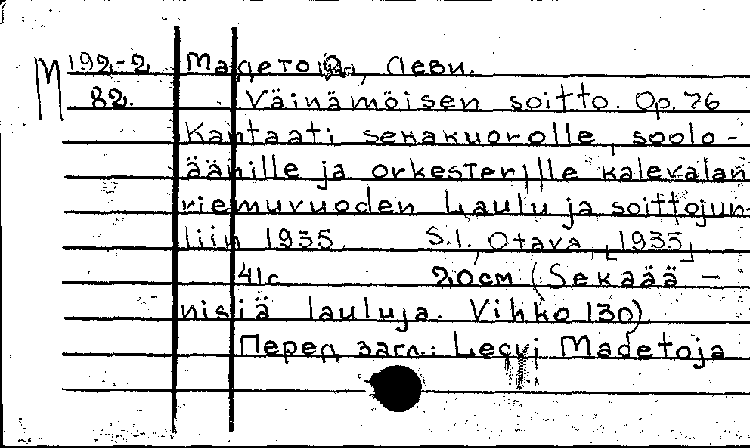 М 192-2 Мадетоја, Леви.
82. Väinämöisen soitto. Op. 76
Kantaati sekakuorolle, soolo-
äänille ja orkesterille kalevalan
riemuvuoden laulu ja soittojuh-
liin 1935. S.l., Otava, [1935]
41с. 20см (Sekaää-
nisiä lauluja. Vihko 130)
Перед загл.: Leevi Madetoja